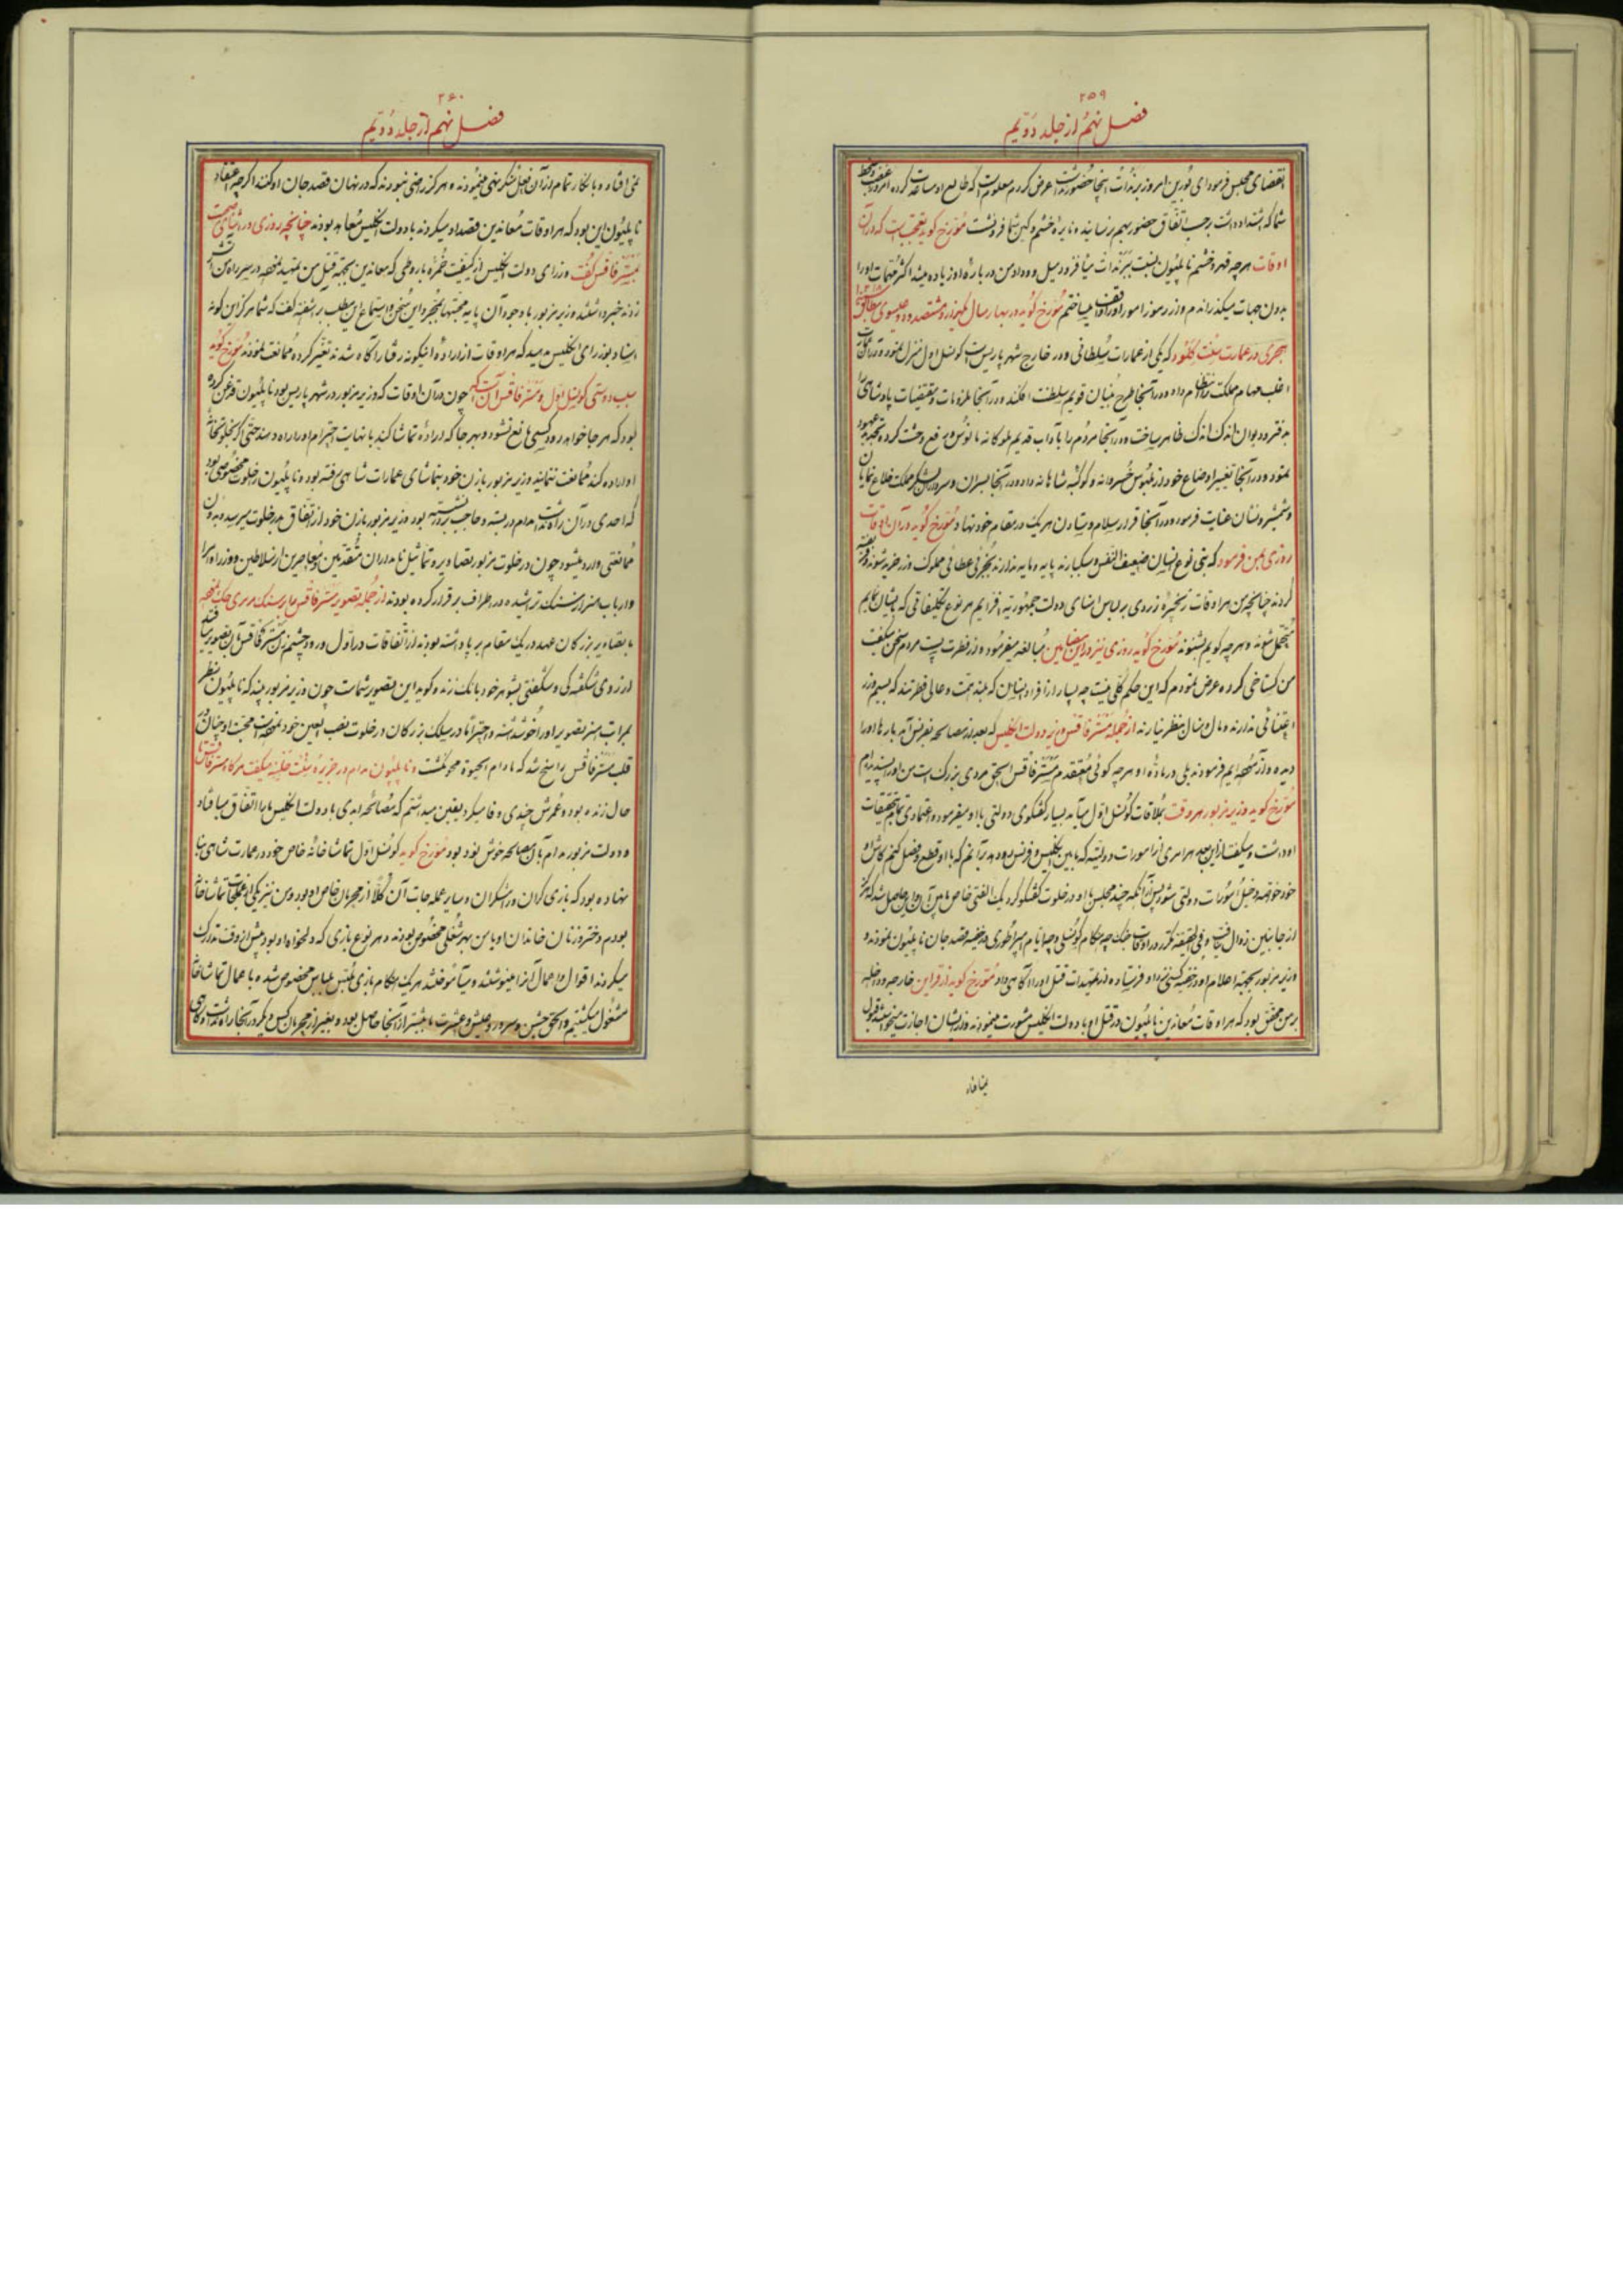 ۲۵۹
فصل نهم از جلد دویم
انقضای مجلس فرمود ای بورین امروز برندات اینجا حضور داشت عرض کردم معلوم است که طالع او مساعدت کرده امروز غضب و سخط
شما که اشتداد داشت برحسب اتفاق حضور بهم نرسانیده نایره خشم و کین شما فرونشست مورخ کوید تعجب است که در آن
اوقات هرچه قهر و خشم ناپلیون بنسبت ببرندات میافزود میل و وداد من درباره او زیاده میشد اکثر مهمات او را
بدون جهات میکذراندم و از رموز امور او را واقف میساختم مورخ کوید در بهار سال یکهزار و هشتصد و دو عیسوی مطابق ۱۲۱۸
هجری در عمارت سنت کلود که یکی از عمارات سلطانی و در خارج شهر پاریس است کونسل اول منزل نموده در آن
اغلب مهام مملکت را انتظام داده و در آنجا طرح بنیان قویم سلطنت افکند و در آنجا ملزومات و مقتضیات پادشاهی را
بدفتر و دیوان اندک اندک ظاهر ساخت و در آنجا مردم را بآداب قدیم ملوکانه مانوس و رفع وحشت کرده تجدید عهود
نمود و در آنجا تغییر اوضاع خود از ملبوس خسروانه و کوکبه شاهانه داد و در آنجا بسران و سروران لشکر و مملکت خلاع نمایان
و شمشیر و نشان عنایت فرمود و در آنجا قرار سلام و ستادن هر یک در مقام خود نهاد مورخ کوید در آن اوقات
روزی بمن فرمود که بنی نوع انسان ضعیف النفس و سبکبارند پایه و مایه ندارند بجزئی عطائی مملوک و زرخرید شوند و فریفته
کردند چنانچه من هر اوقات زنجیره زردی بر لباس امنای دولت جمهوریه افزایم هر نوع تکلیفاتی که بایشان نمایم
متحمل شوند و هرچه کویم بشنوند مورخ کوید روزی نیز در این مضامین مبالغه میفرمود و از فطرت پست مردم سخن میکفت
من کستاخی کرده عرض نمودم که این حکم کلی نیست چه بسیار از افراد انسان که بلند همت و عالی فطرتند که بسیم و زر
اعتنائی ندارند و مال و منال بنظر نیارند از جمله مستر فاقس وزیر دولت انکلیس که بعد از مصالحه بفرنس آمد بارها او را
دیده و آزموده‌ایم فرمودند بلی درباره او هرچه کوئی معتقدم مستر فاقس الحق مردی بزرک است من او را پسندیده‌ام
مورخ کوید وزیر مزبور هر وقت بملاقات کونسل اول میآمد بسیار کفتکوی دولتی با او میفرمود و اعتمادی تمام بتحقیقات
او داشت و میکفت از این ببعد هر امری از امورات دولتی که مابین انکلیس و فرنس رو دهد بر آنم که با او قطع و فصل کنم کاش او
از جانبین زوال نیافت و فی الحقیقه مکرر در اوقات جنک چه هنکام کونسلی و چه ایام امپراطوری در خفیه قصد جان ناپلیون نمودند و
وزیر مزبور بجهة اعلام او در خفیه کسی نزد او فرستاده و از تمهیدات قتل او را آکاهی داد مورخ کوید از قراین خارجه و داخله
بر من محقق بود که هر اوقات معاندین ناپلیون در قتل او با دولت انکلیس مشورت مینمودند و از ایشان اجازت میخواستند قبول
نمی افتاد
۲۶۰
فصل نهم از جلد دویم
نمی افتاد و بانکار تمام از آن فعل منکر نهی مینمودند و هرکز راضی نبودند که در نهان قصد جان او کنند اکرچه اعتقاد
ناپلیون این بود که هر اوقات معاندین قصد او میکردند با دولت انکلیس معاهد بودند چنانچه روزی در اثنای صحبت
بمستر فاقس کفت وزرای دولت انکلیس از کیفیت خمره باروطی که معاندین بجهة قتل من تمهید نموده در سر راه من آتش
زدند خبر داشتند وزیر مزبور با وجود آن پایه محبتها بمجرد این سخن و استماع این مطلب برآشفته کفت که شما هرکز این کونه
اسناد بوزرای انکلیس مدهید که هر اوقات از اراده اینکونه رفتار آکاه شدند تغیر کرده ممانعت نمودند مورخ کوید
سبب دوستی کونسل اول و مستر فاقس آنست که چون در آن اوقات که وزیر مزبور در شهر پاریس بود ناپلیون قدغن کرده
بود که هر جا خواهد رود کسی مانع نشود و بهر جا که اراده تماشا کند با نهایت احترام او را راه دهند حتی اکر بخلوتخانه
او اراده کند ممانعت ننمایند وزیر مزبور با زن خود بتماشای عمارات شاهی رفته بود و ناپلیون را خلوت مخصوصی بود
که احدی در آن راه نداشت مدام در بسته و حاجب بر در نشسته بود وزیر مزبور با زن خود از اتفاق بدر خلوت میرسد و بدون
ممانعتی وارد میشود چون در خلوت مزبور تصاویر و تماثیل نامداران متقدمین و معاصرین از سلاطین و وزراء و امرا
و ارباب هنر از سنک تراشیده در اطراف برقرار کرده بودند از جمله تصویر مستر فاقس را بر سنک مرمری حک نموده
با تصاویر بزرکان عهد در یک مقام برپا داشته بودند از اتفاقات در اول ورود چشم زن مستر فاقس بآن تصویر میافتد
از روی شکفتکی و شکفتی بشوهر خود بانک زند و کوید این تصویر شماست چون وزیر مزبور بیند که ناپلیون بنظر
قلب مستر فاقس راسخ شد که مادام الحیوة محو نکشت و ناپلیون مدام در جزیره سنت هلینه میکفت هرکاه مستر فاقس تا
حال زنده بود و عمرش چندی وفا میکرد یقین میدانستم که مصالحه ابدی با دولت انکلیس ما را اتفاق میافتاد
و دولت مزبور مدام بآن مصالحه خوش بود مورخ کوید کونسل اول تماشاخانه خاص خود در عمارت شاهی بنا
نهاده بود که بازی کران و رامشکران و سایر عمله جات آن کلا از محرمان خاص او بود و من نیز یکی از عمله جات تماشاخانه
بودم و دختر و زنان خاندان او با من بهر شغلی مخصوص بودند و هر نوع بازی که دلخواه او بود پیش از وقت تدارک
میکردند اقوال و اعمال آن را مینوشتند و میآموختند هر یک هنکام بازی ملبس بلباس مخصوص شده با عمال تماشاخانه
مشغول میکشتیم و الحق جشن و سرور و عیش و عشرت ما بیشتر از آنجا حاصل بود و بغیر از محرمان کس دیکر در آنجا راه نداشت